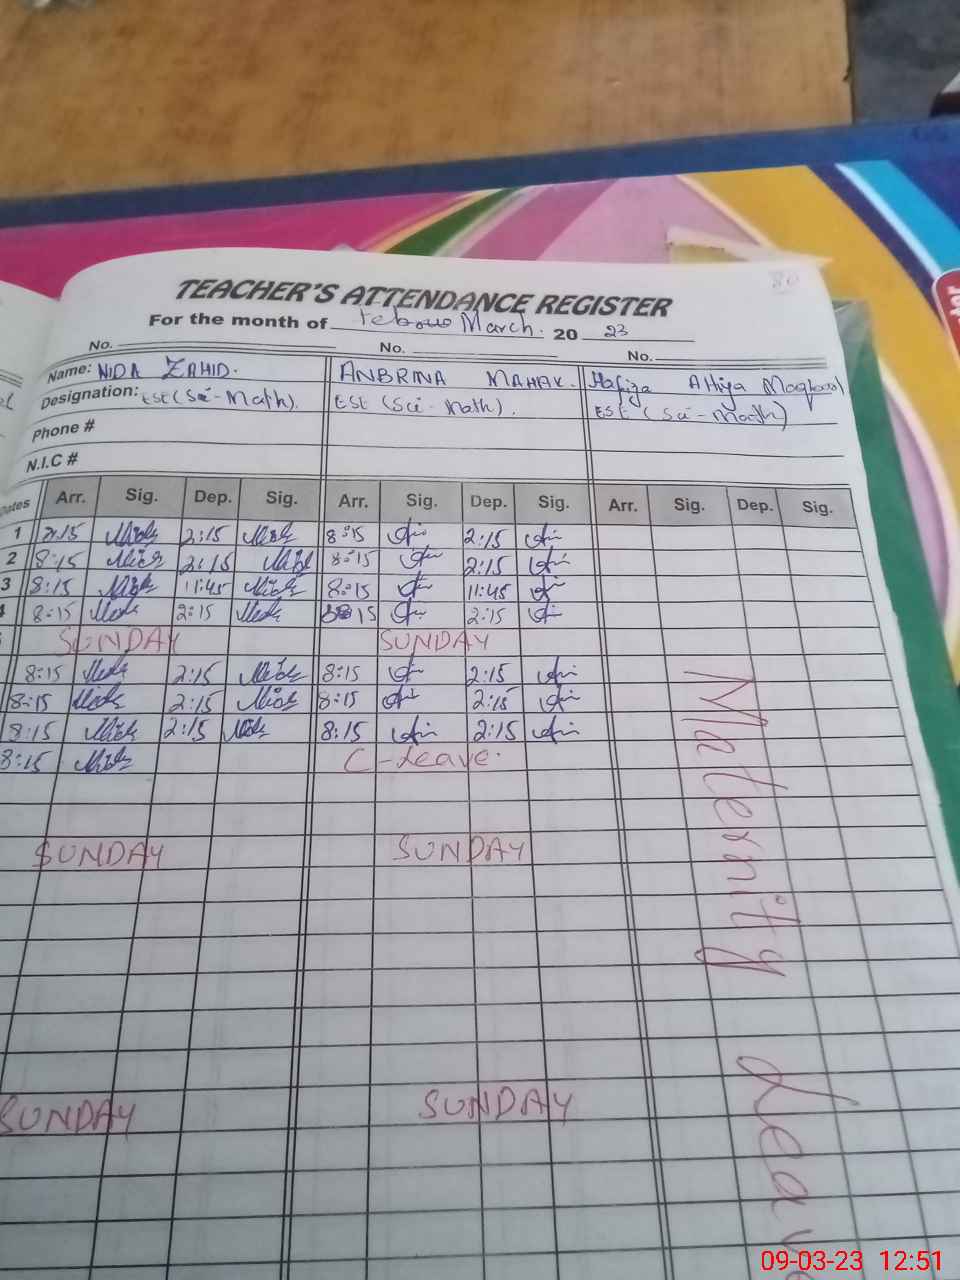 TEACHER'S ATTENDANCE REGISTER
For the month of March. 20 23
No. No. No.
Name: NIDA ZAHID. ANBRINA MAHAK. Hafiza Attiya Maqbool
Designation: EST (Sci-Math). EST (Sci-Math). EST (Sci-Math)
Phone #
N.I.C #
Dates Arr. Sig. Dep. Sig. Arr. Sig. Dep. Sig. Arr. Sig. Dep. Sig.
1 2:15 8:15 2:15
2 8:15 2:15 8:15 2:15
3 8:15 11:45 8:15 11:45
4 8:15 2:15 8:15 2:15
SUNDAY SUNDAY
8:15 2:15 8:15 2:15
8:15 2:15 8:15 2:15
8:15 2:15 8:15 2:15
8:15 C-Leave.
SUNDAY SUNDAY
SUNDAY SUNDAY
Maternity Leav
09-03-23 12:51